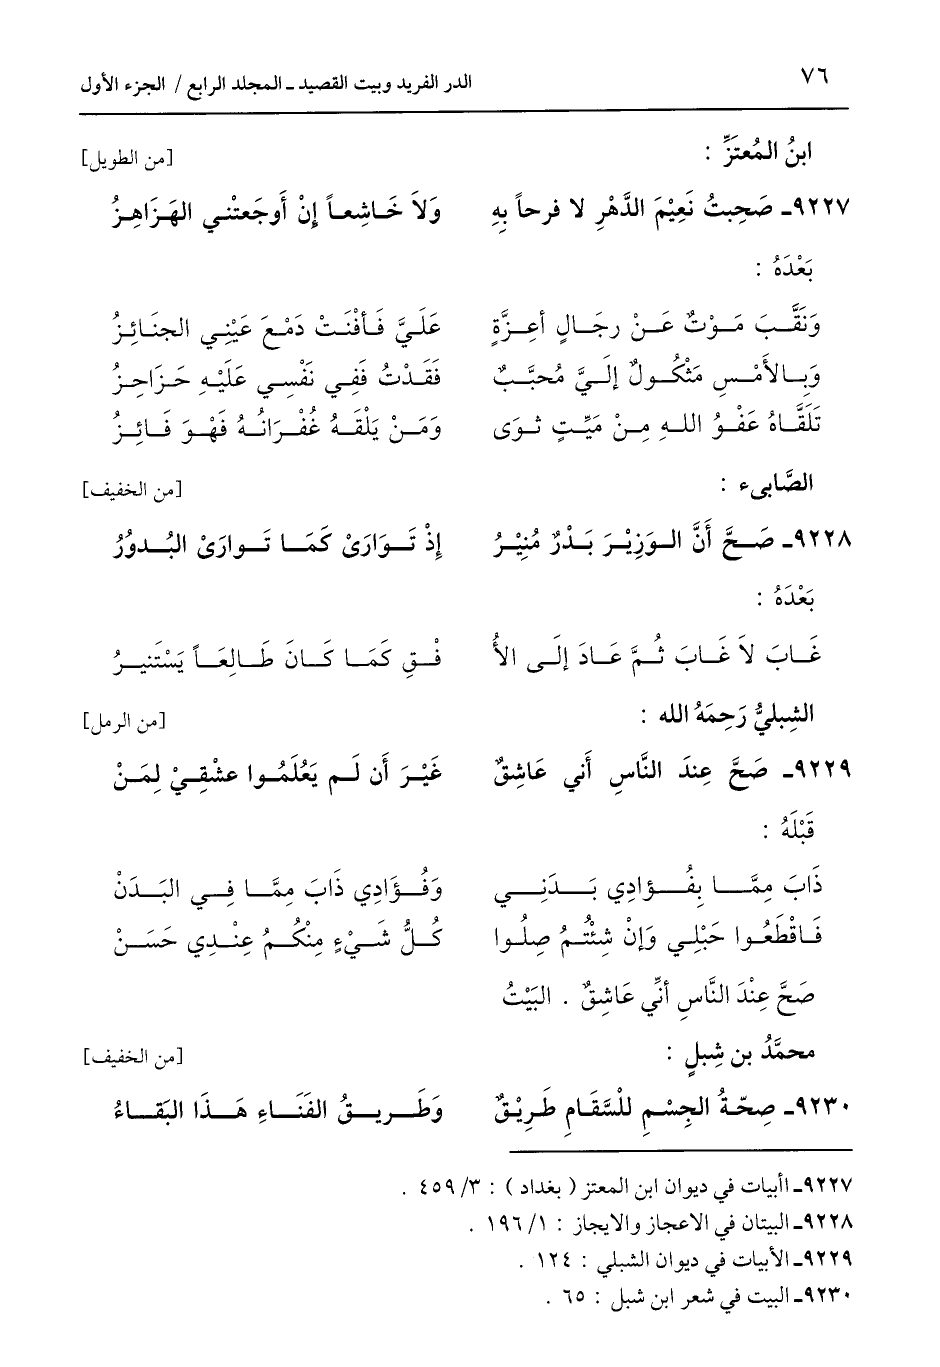 ٧٦ الدر الفريد وبيت القصيد ـ المجلد الرابع / الجزء الأول
ابنُ المُعتَزِّ : [من الطويل]
٩٢٢٧ـ صَحِبتُ نَعِيْمَ الدَّهْرِ لا فرحاً بِهِ وَلاَ خَاشِعاً إِنْ أَوجَعتْني الهَزَاهِزُ
بَعْدَهُ :
وَنَقَّبَ مَوْتٌ عَنْ رِجَالٍ أعِزَّةٍ عَلَيَّ فَأفْنَتْ دَمْعَ عَيْنِي الجنَائِزُ
وَبِالأَمْسِ مَثْكُولٌ إِلَيَّ مُحَبَّبٌ فَقَدْتُ فَفِي نَفْسِي عَلَيْهِ حَزَاحِزُ
تَلَقَّاهُ عَفْوُ اللهِ مِنْ مَيِّتٍ ثوَى وَمَنْ يَلْقَهُ غُفْرَانُهُ فَهْوَ فَائِزُ
الصَّابىء : [من الخفيف]
٩٢٢٨ـ صَحَّ أَنَّ الوَزِيْرَ بَدْرٌ مُنِيْرُ إِذْ تَوَارَىْ كَمَا تَوارَىْ البُدوْرُ
بَعْدَهُ :
غَابَ لاَ غَابَ ثُمَّ عَادَ إِلَى الأُ فْقِ كَمَا كَانَ طَالِعَاً يَسْتَنيرُ
الشِبليُّ رَحِمَهُ الله : [من الرمل]
٩٢٢٩ـ صَحَّ عِندَ النَّاسِ أَني عَاشِقٌ غَيْرَ أَن لَم يَعْلَمُوا عشْقِيْ لِمَنْ
قَبْلَهُ :
ذَابَ مِمَّا بِفُؤادِي بَدَنِي وَفُؤَادِي ذَابَ مِمَّا فِي البَدَنْ
فَاقْطَعُوا حَبْلِي وَإِنْ شِئْتُم صِلُوا كُلُّ شَيْءٍ مِنْكُمُ عِنْدِي حَسَنْ
صَحَّ عِنْدَ النَّاسِ أنِّي عَاشِقٌ . البَيْتُ
محمَّدُ بن شِبلٍ : [من الخفيف]
٩٢٣٠ـ صِحّةُ الجِسْمِ للْسَّقَامِ طَرِيْقٌ وَطَرِيقُ الفَنَاءِ هَذَا البَقَاءُ
٩٢٢٧ـ اأبيات في ديوان ابن المعتز ( بغداد ) : ٣/ ٤٥٩ .
٩٢٢٨ـ البيتان في الاعجاز والايجاز : ١/ ١٩٦ .
٩٢٢٩ـ الأبيات في ديوان الشبلي : ١٢٤ .
٩٢٣٠ـ البيت في شعر ابن شبل : ٦٥ .